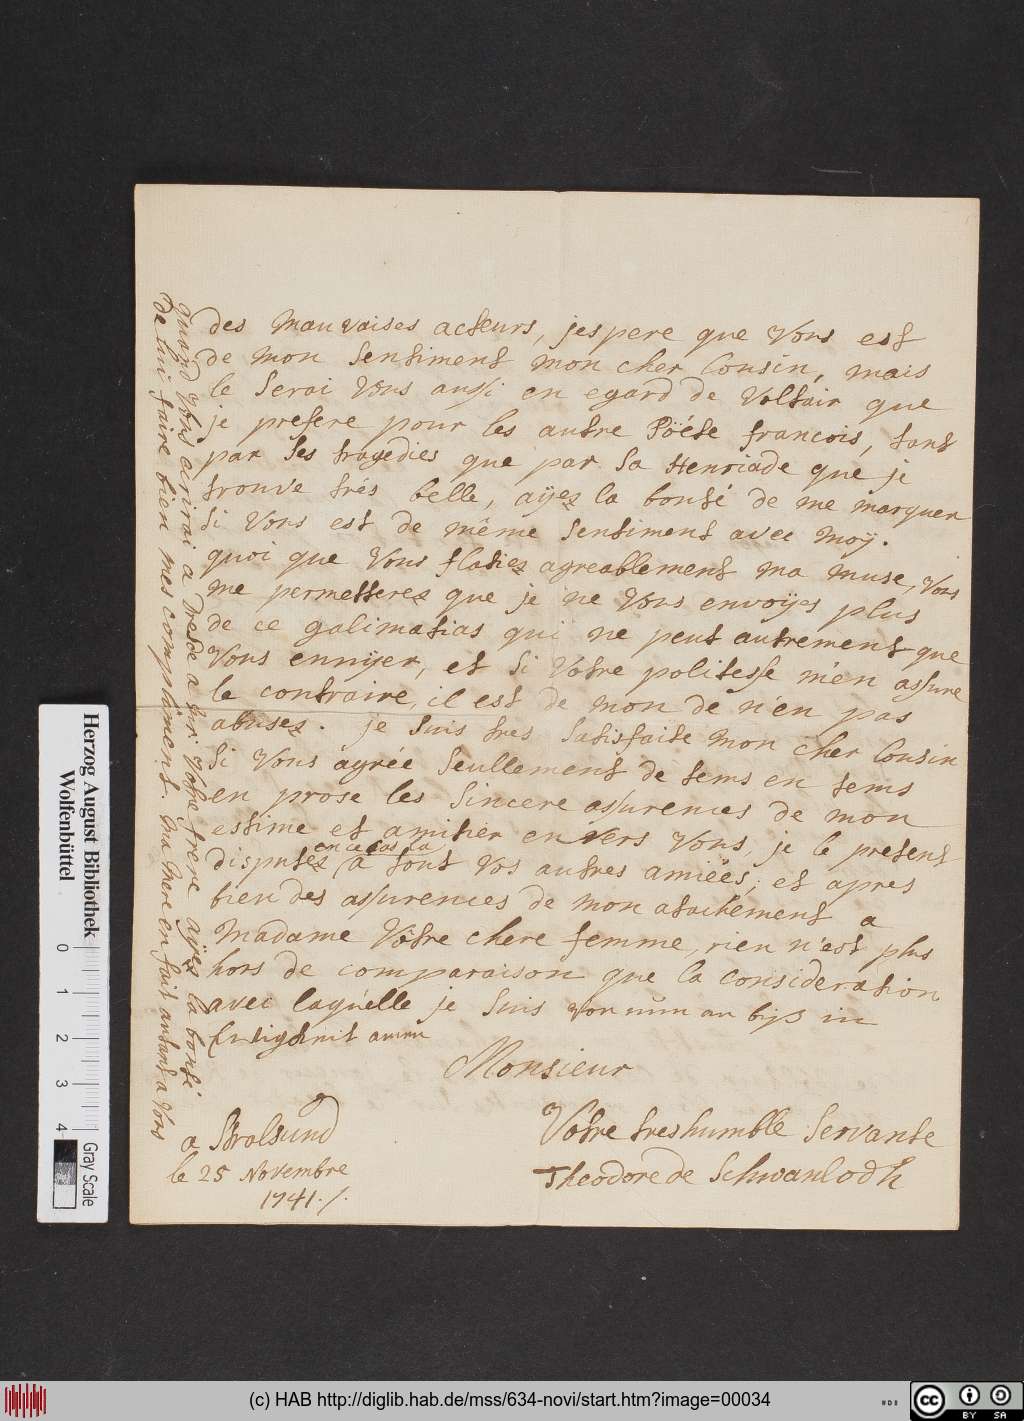 des mauvaises acteurs, jespere que Vous est
de mon sentiment mon cher Cousin, mais
le serai Vous aussi en egard de Voltair que
je prefere pour les autre Pöéte francois, tant
par ses tragedies que par sa Henriade que je
trouve trés belle, aÿez la bonté de me marquer
si Vous est de même sentiment avec moÿ.
quoi que Vous flatiez agreablement ma muse, Vous
me permetterez que je ne Vous envoÿes plus
de ce galimatias qui ne peut autrement que
Vous ennyer, et si Votre politesse m'en assure
le contraire, il est de mon de n'en pas
abusez. je suis tres satisfaite mon cher Cousin
si Vous agrée seullement de tems en tems
en prose les sincere assurences de mon
estime et amitier envers Vous, je le present
en ce cas la
disputez à tout Vos autres amiëes; et apres
bien des assurences de mon atachement a
Madame Vôtre chere femme, rien n'est plus
hors de comparaison que la consideration
avec laquelle je suis von nun an biß in
Ewigkeit amen
Monsieur
Votre treshumble Servante
Theodore de Schwanlodh
a Stralsund
le 25 Novembre
1741./.
quand Vous acrirai a Dresde a Votre frere aÿez la bonté
de lui faire bien mes complimens. ma mere en fait autant a Vous
Herzog August Bibliothek
Wolfenbüttel
0 1 2 3 4
Gray Scale
(c) HAB http://diglib.hab.de/mss/634-novi/start.htm?image=00034
cc BY SA